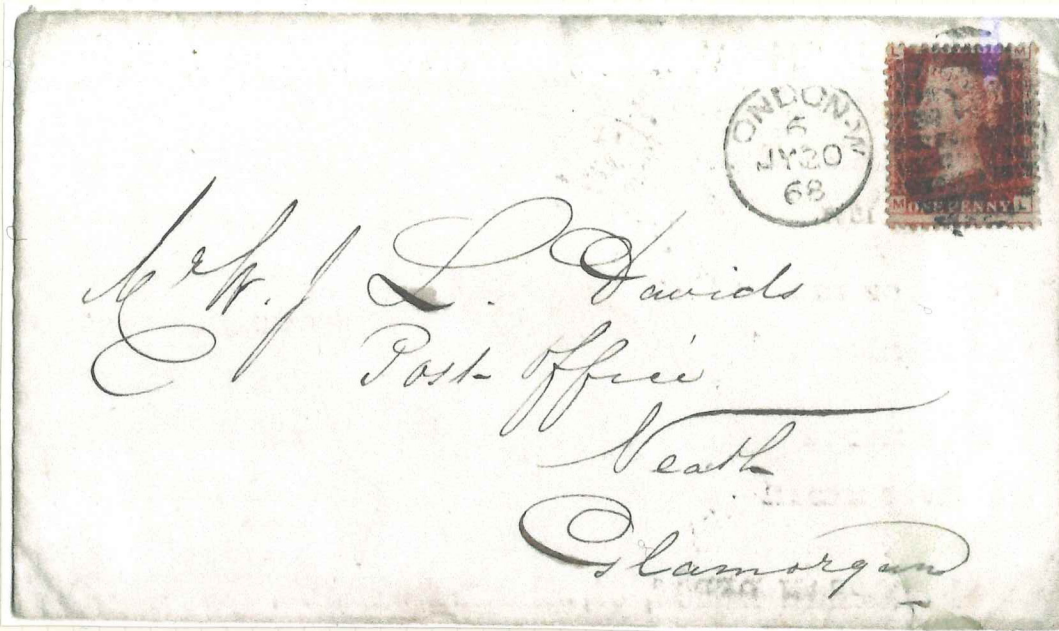 L M
LONDON·W
5
JY 20
68
M ONE PENNY L
Mr W. J. L. Davids
Post Office
Neath
Glamorgan